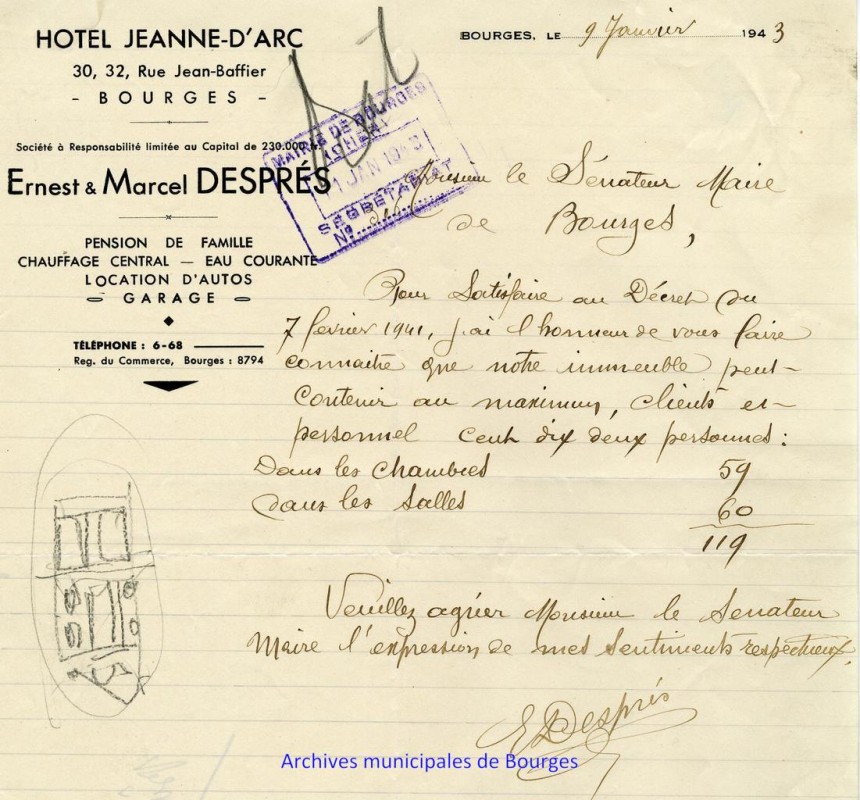 HOTEL JEANNE-D'ARC
30, 32, Rue Jean-Baffier
- BOURGES -
Société à Responsabilité limitée au Capital de 230.000 fr.
Ernest & Marcel DESPRÉS
PENSION DE FAMILLE
CHAUFFAGE CENTRAL — EAU COURANTE
LOCATION D'AUTOS
GARAGE
TÉLÉPHONE : 6-68
Reg. du Commerce, Bourges : 8794
BOURGES, LE 9 Janvier 1943
MAIRIE DE BOURGES
(CHER)
11 JAN 1943
SECRÉTARIAT
No
Monsieur le Sénateur Maire
de Bourges,
Pour Satisfaire au Décret du
7 février 1941, j'ai l'honneur de vous faire
connaitre que notre immeuble peut
contenir au maximum, clients et
personnel cent dix deux personnes :
Dans les chambres 59
dans les salles 60
119
Veuillez agréer Monsieur le Senateur
Maire l'expression de mes sentiments respectueux.
E Després
Archives municipales de Bourges